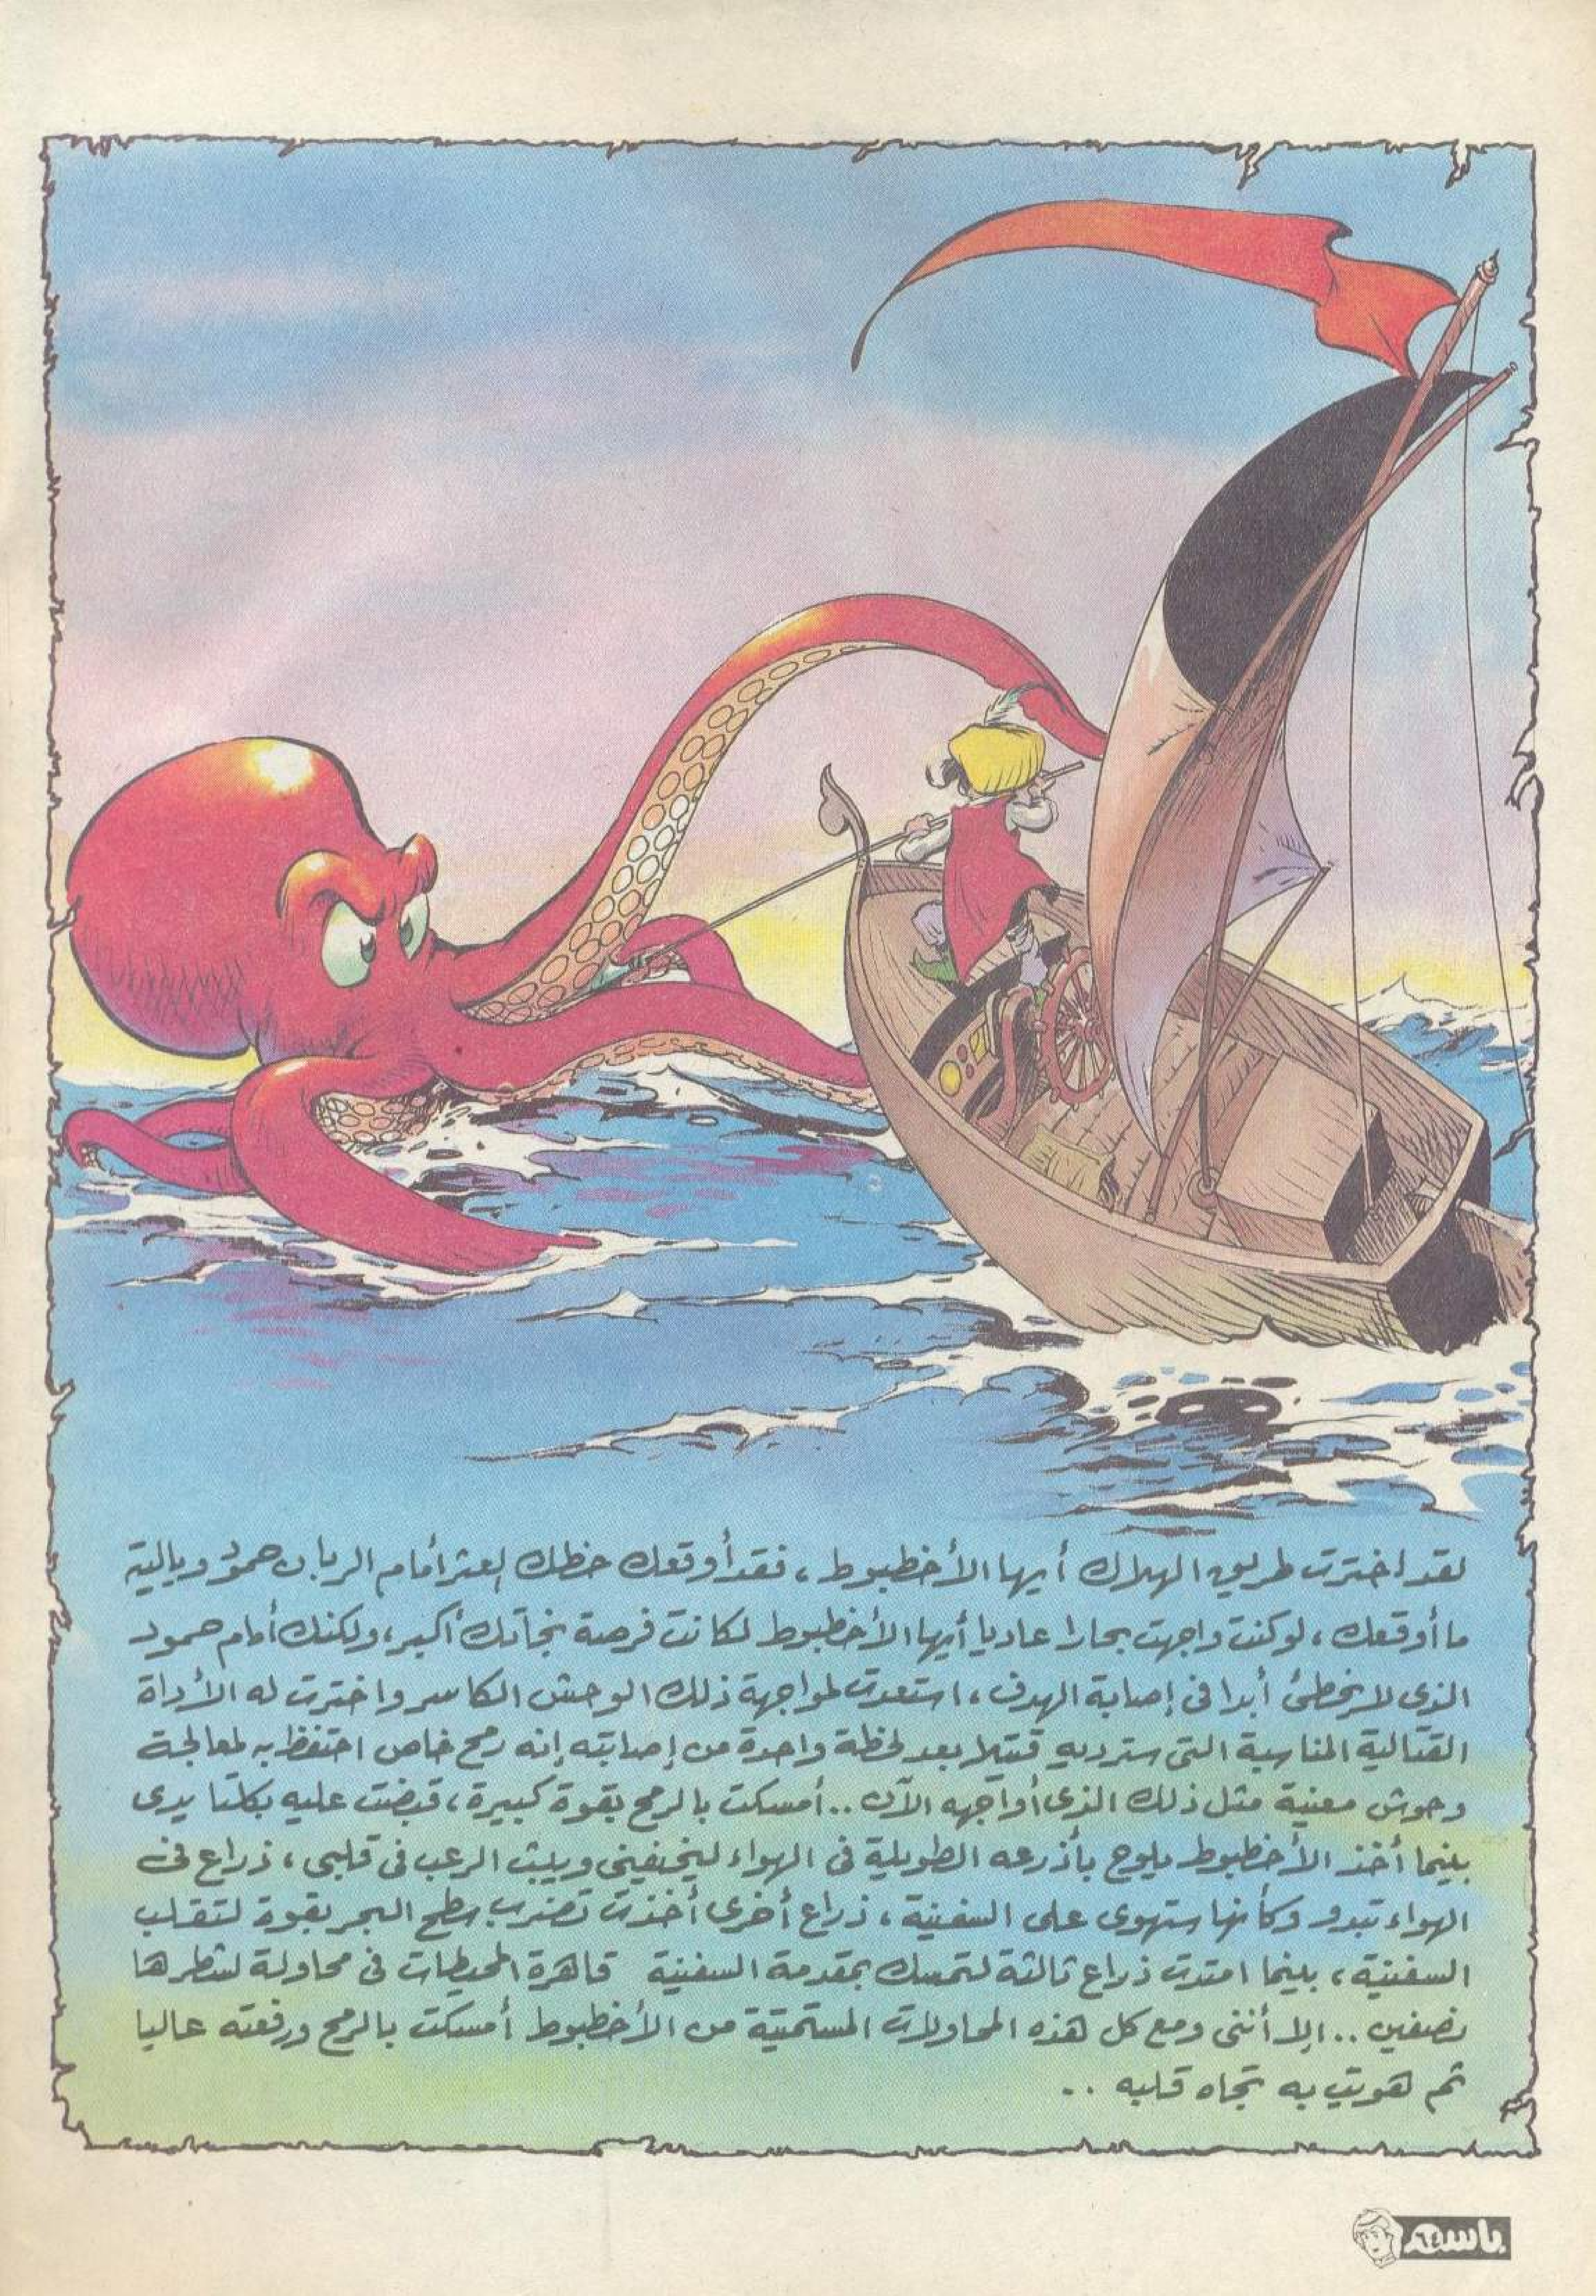 لقد اخترت طريق الهلاك أيها الأخطبوط، فقد أوقعك حظك العثر أمام الربان حمود وياليته
ما أوقعك، لو كنت واجهت بحارا عاديا أيها الأخطبوط لكانت فرصة نجاتك أكبر، ولكنك أمام حمود
الذى لا يخطئ أبدا فى إصابة الهدف، استعدت لمواجهة ذلك الوحش الكاسر واخترت له الأداة
القتالية المناسبة التى سترديه قتيلا بعد لحظة واحدة من إصابته إنه رمح خاص احتفظ به لمعالجة
وحوش معينة مثل ذلك الذى أواجهه الآن .. أمسكت بالرمح بقوة كبيرة، قبضت عليه بكلتا يدى
بينما أخذ الأخطبوط يلوح بأذرعه الطويلة فى الهواء ليخيفنى ويبث الرعب فى قلبى، ذراع فى
الهواء تبدو وكأنها ستهوى على السفينة، ذراع أخرى أخذت تضرب سطح البحر بقوة لتقلب
السفينة، بينما امتدت ذراع ثالثة لتمسك بمقدمة السفينة قاهرة المحيطات فى محاولة لشطرها
نصفين .. إلا أننى ومع كل هذه المحاولات المستميتة من الأخطبوط أمسكت بالرمح ورفعته عاليا
ثم هويت به تجاه قلبه ..
باسم